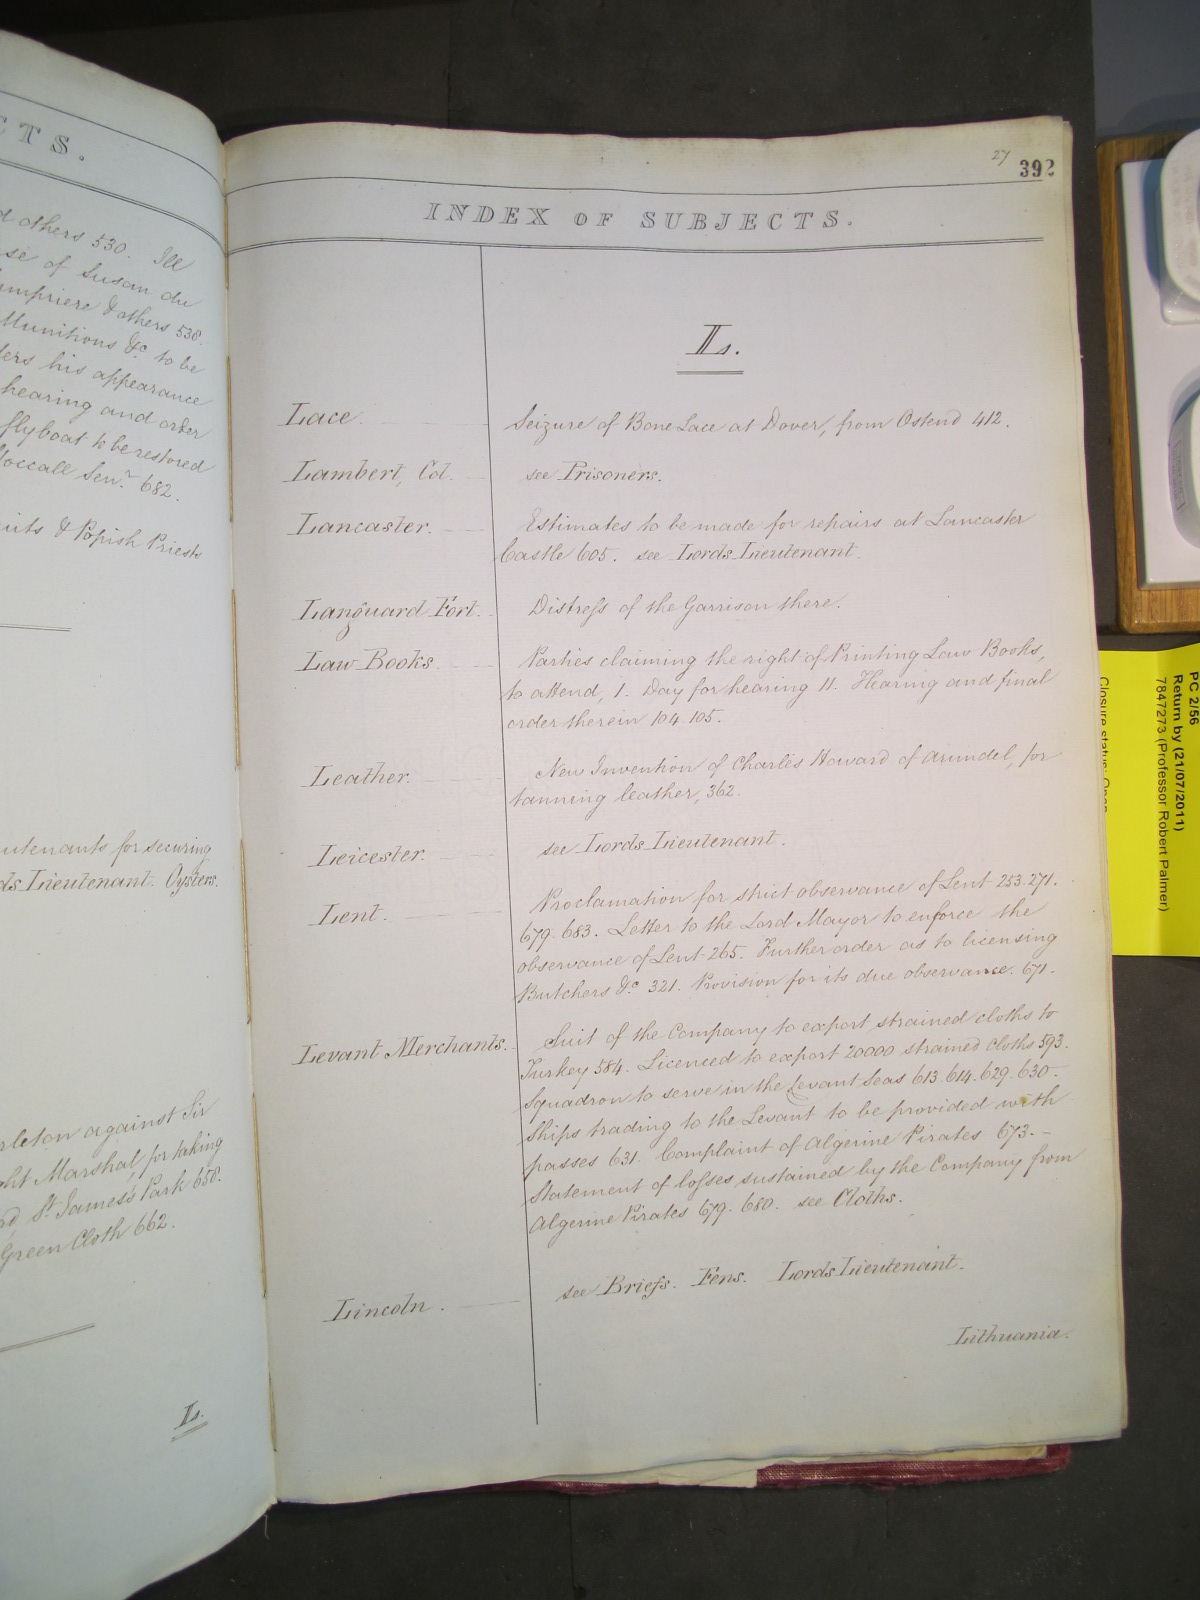 CTS.
others 530. Ill
se of Susan du
umpriere & others 538.
Munitions &c to be
ders his appearance
hearing and order
flyboat to be restored
Senr 682.
uits & Popish Priests
utenants for securing
ds Lieutenant. Oysters.
rleton against Sir
ght Marshal, for taking
St James's Park 658.
Green Cloth 662.
L.
27 392
INDEX OF SUBJECTS.
L.
Lace. Seizure of Bone Lace at Dover, from Ostend 412.
Lambert, Col. see Prisoners.
Lancaster. Estimates to be made for repairs at Lancaster
Castle 605. see Lords Lieutenant.
Languard Fort. Distress of the Garrison there.
Law Books. Parties claiming the right of Printing Law Books,
to attend, 1. Day for hearing 11. Hearing and final
order therein 104. 105.
Leather. New Invention of Charles Howard of Arundel, for
tanning leather, 362.
Leicester. see Lords Lieutenant.
Lent. Proclamation for strict observance of Lent 253. 271.
679. 683. Letter to the Lord Mayor to enforce the
observance of Lent 265. Further order as to licensing
Butchers &c 321. Provision for its due observance. 671.
Levant Merchants. Suit of the Company to export strained cloths to
Turkey 584. Licenced to export 20000 strained cloths 593.
Squadron to serve in the Levant Seas 613. 614. 629. 630.
Ships trading to the Levant to be provided with
passes 631. Complaint of Algerine Pirates 673. -
Statement of losses sustained by the Company from
Algerine Pirates 679. 680. see Cloths.
Lincoln. see Briefs. Fens. Lords Lieutenant.
Lithuania.
PC 2/56
Return by (21/07/2011)
7847273 (Professor Robert Palmer)
Closure status: Open